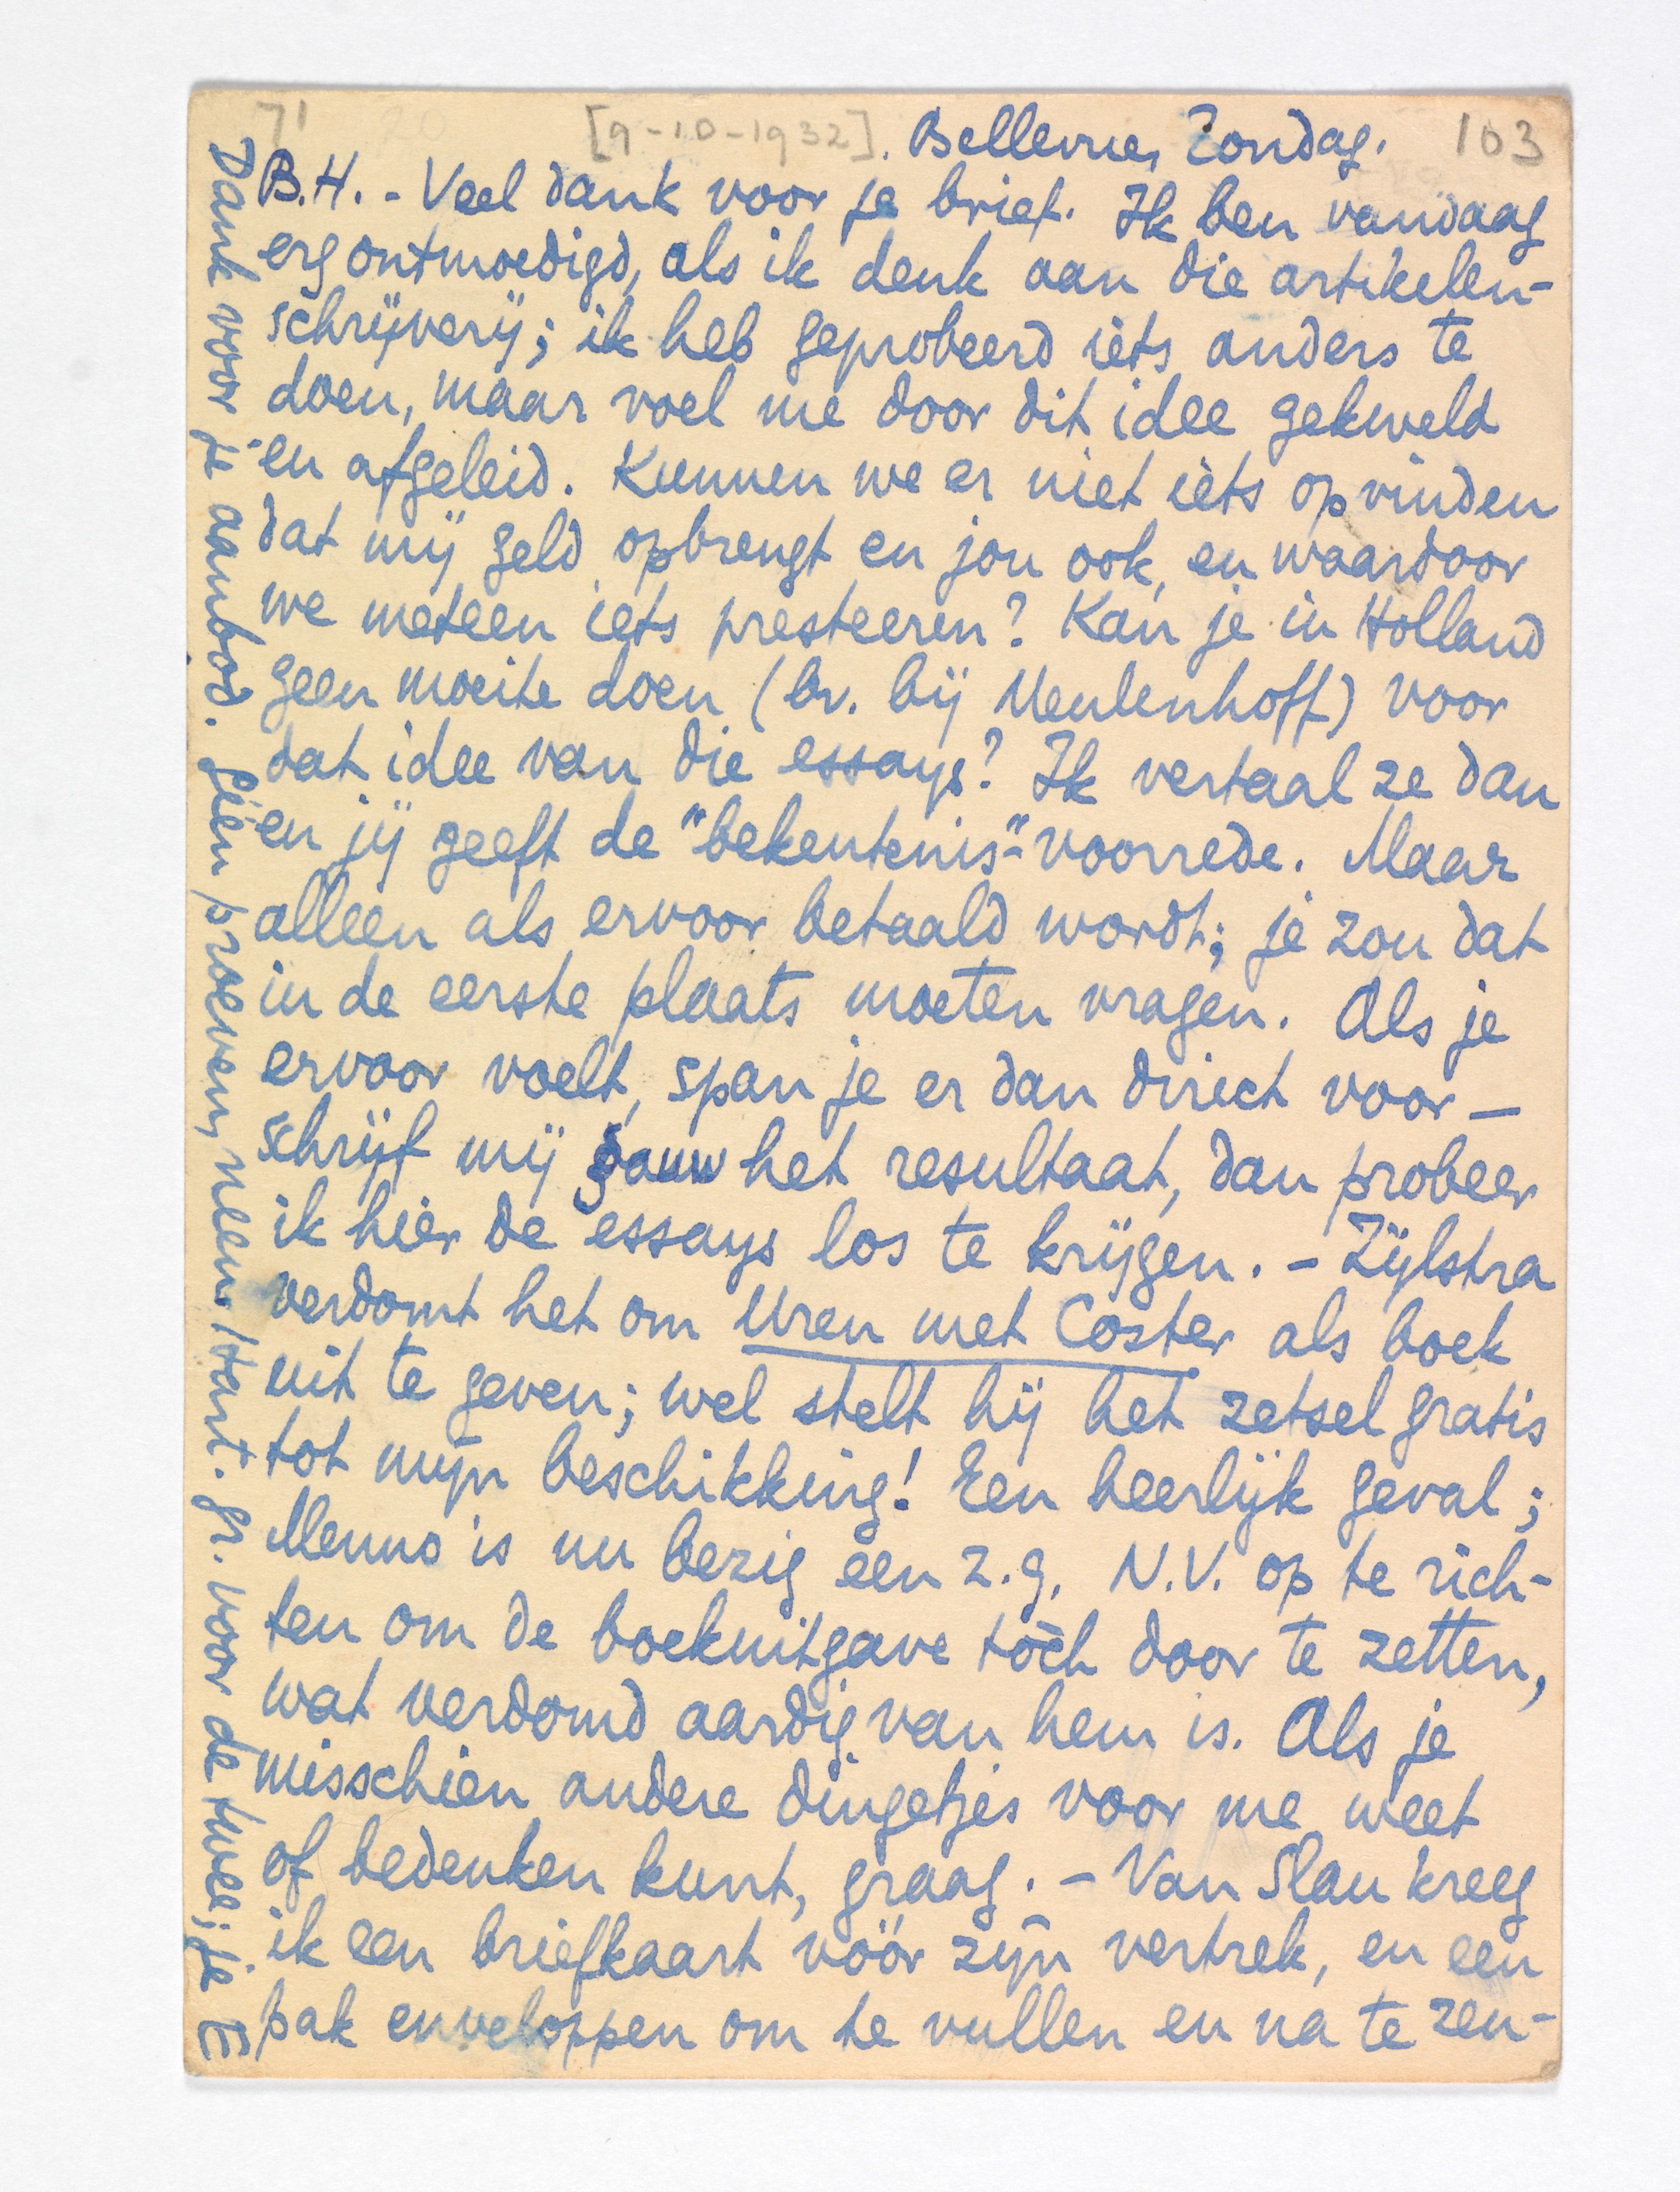 71 20 [9-10-1932]. Bellevue, Zondag. 103
B.H. - Veel dank voor je brief. Ik ben vandaag
erg ontmoedigd, als ik denk aan die artikelen-
schrijverij; ik heb geprobeerd iets anders te
doen, maar voel me door dit idee gekweld
en afgeleid. Kunnen we er niet iéts op vinden
dat mij geld opbrengt en jou ook, en waardoor
we meteen iets presteeren? Kan je in Holland
geen moeite doen (bv. bij Meulenhoff) voor
dat idee van die essays? Ik vertaal ze dan
en jij geeft de "bekentenis"-voorrede. Maar
alleen als ervoor betaald wordt; je zou dat
in de eerste plaats moeten vragen. Als je
ervoor voelt, span je er dan direct voor —
schrijf mij gauw het resultaat, dan probeer
ik hier de essays los te krijgen. - Zijlstra
verdomt het om Uren met Coster als boek
uit te geven; wel stelt hij het zetsel gratis
tot mijn beschikking! Een heerlijk geval;
Menno is nu bezig een z.g. N.V. op te rich-
ten om de boekuitgave tòch door te zetten,
wat verdomd aardig van hem is. Als je
misschien andere dingetjes voor me weet
of bedenken kunt, graag. - Van Slau kreeg
ik een briefkaart vóór zijn vertrek, en een
pak enveloppen om te vullen en na te zen-
Dank voor je aanbod. Géén proeven, neen. Hart. gr. voor de twee; je E